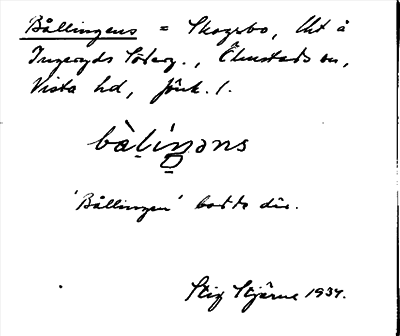 Bållingens = Skogsbo, lht å
Ingeryds Söderg., Ölmstads sn,
Vista hd, Jönk. l.
bàḷíŋəns
'Bållingen' bodde där.
Stig Stjärne 1934.